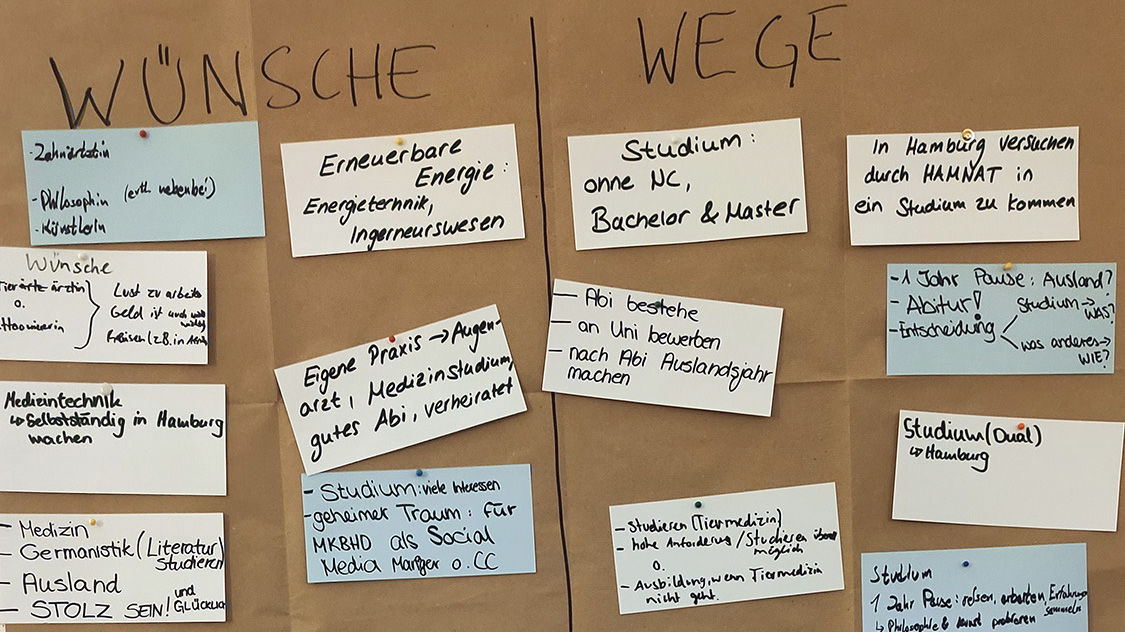 WÜNSCHE
- Zahnärztin
- Philosophin (evtl. nebenbei)
- Künstlerin
Wünsche
o.
Lust zu arbeite
Geld ist auch
Reisen (z.B. in
Medizintechnik
↳ Selbstständig in Hamburg
machen
- Medizin
- Germanistik (Literatur)
Studieren
- Ausland
- STOLZ SEIN! und
GLÜCKLI
Erneuerbare
Energie:
Energietechnik,
Ingerneurswesen
Eigene Praxis → Augen-
arzt, Medizinstudium,
gutes Abi, verheiratet
- Studium: viele Interessen
- geheimer Traum: für
MKBHD als Social
Media Manger o. CC
WEGE
Studium:
ohne NC,
Bachelor & Master
- Abi bestehe
- an Uni bewerben
- nach Abi Auslandsjahr
machen
- Studieren (Tiermedizin)
- hohe Anforderung / Studieren überall
möglich
o.
- Ausbildung, wenn Tiermedizin
nicht geht.
In Hamburg versuchen
durch HAMNAT in
ein Studium zu kommen
- 1 Jahr Pause: Ausland?
- Abitur!
- Entscheidung
Studium → WAS?
was anderes →
WIE?
Studium (Dual)
↳ Hamburg
Studium
1 Jahr Pause: reisen, arbeiten, Erfahrung
sammeln
↳ Philosophie & Kunst probieren